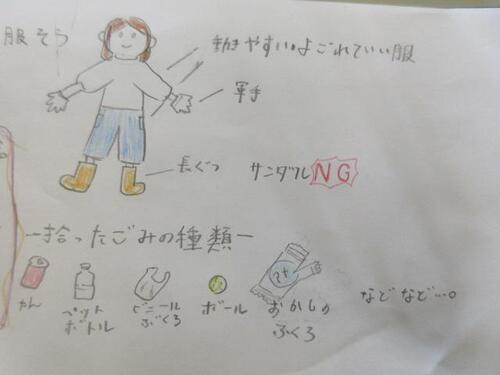 服そう
動きやすい。よごれていい服
軍手
長ぐつ サンダルNG
ー拾ったごみの種類ー
かん
ペット
ボトル
ビニール
ぶくろ
ボール
おかしの
ふくろ
などなど…。